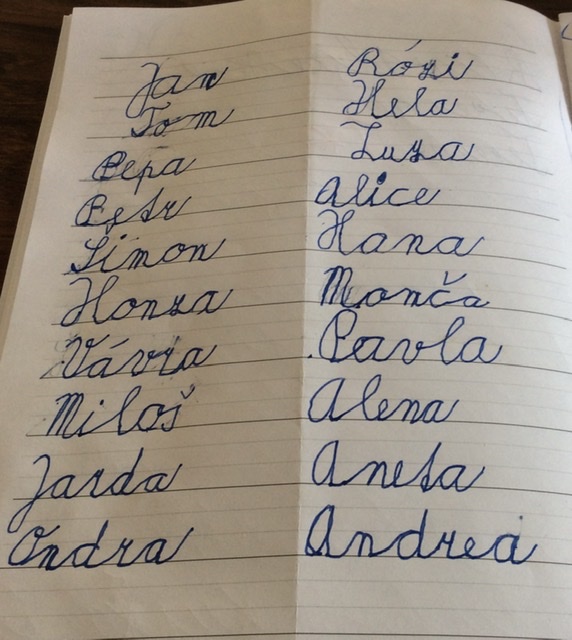 Jan
Tom
Pepa
Petr
Šimon
Honza
Vávra
Miloš
Jarda
Ondra
Rózi
Hela
Luza
Alice
Hana
Monča
Pavla
Alena
Aneta
Andrea